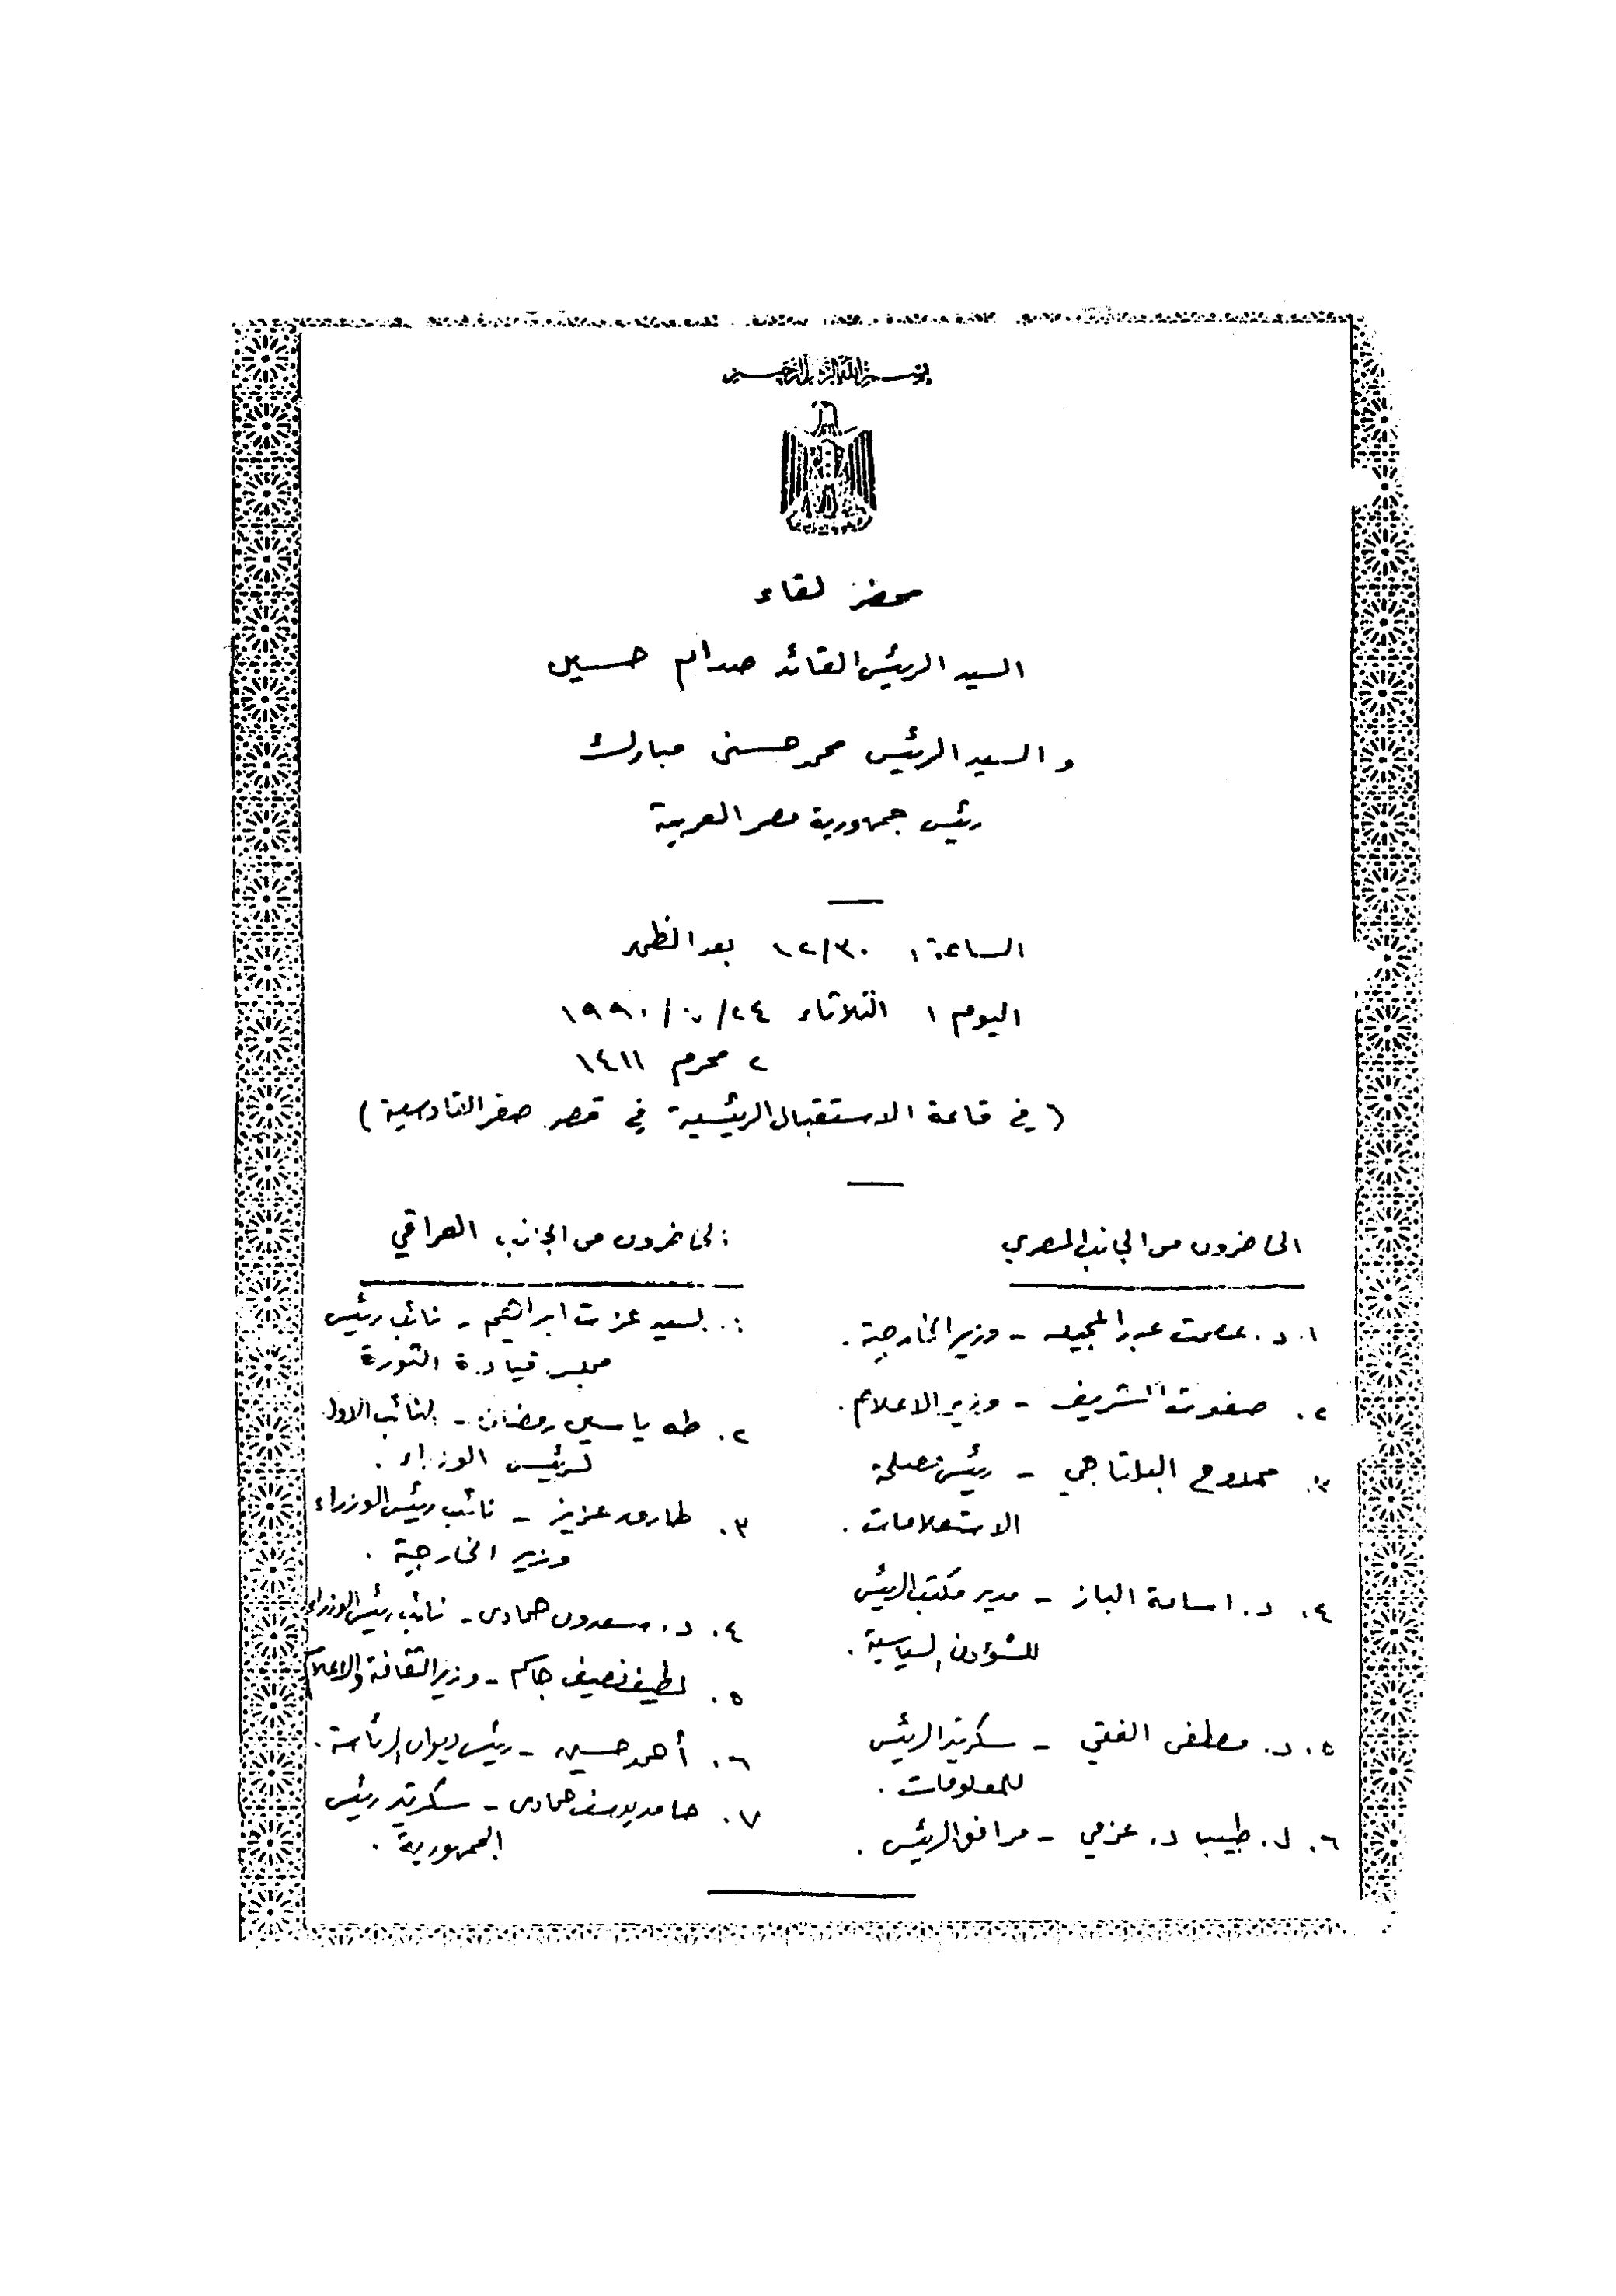 بسم الله الرحمن الرحيم
محضر لقاء
السيد الرئيس القائد صدام حسين
و السيد الرئيس محمد حسني مبارك
رئيس جمهورية مصر العربية
الساعة : ١٢/٣٠ بعد الظهر
اليوم : الثلاثاء ٢٤/٧/١٩٩٠
٢ محرم ١٤١١
( في قاعة الاستقبال الرئيسية في قصر صقر القادسية )
الحاضرون من الجانب المصري
١. د. عصمت عبد المجيد - وزير الخارجية .
٢. صفوت الشريف - وزير الاعلام .
٣. ممدوح البلتاجي - رئيس مصلحة
الاستعلامات .
٤. د. اسامة الباز - مدير مكتب الرئيس
للشؤون السياسية .
٥. د. مصطفى الفقي - سكرتير الرئيس
للمعلومات .
٦. ل. طبيب د. عزمي - مرافق الرئيس .
الحاضرون من الجانب العراقي
١. السيد عزت ابراهيم - نائب رئيس
مجلس قيادة الثورة
٢. طه ياسين رمضان - النائب الاول
لرئيس الوزراء .
٣. طارق عزيز - نائب رئيس الوزراء
وزير الخارجية .
٤. د. سعدون حمادي - نائب رئيس الوزراء
٥. لطيف نصيف جاسم - وزير الثقافة والاعلام
٦. أحمد حسين - رئيس ديوان الرئاسة .
٧. حامد يوسف حمادي - سكرتير رئيس
الجمهورية .